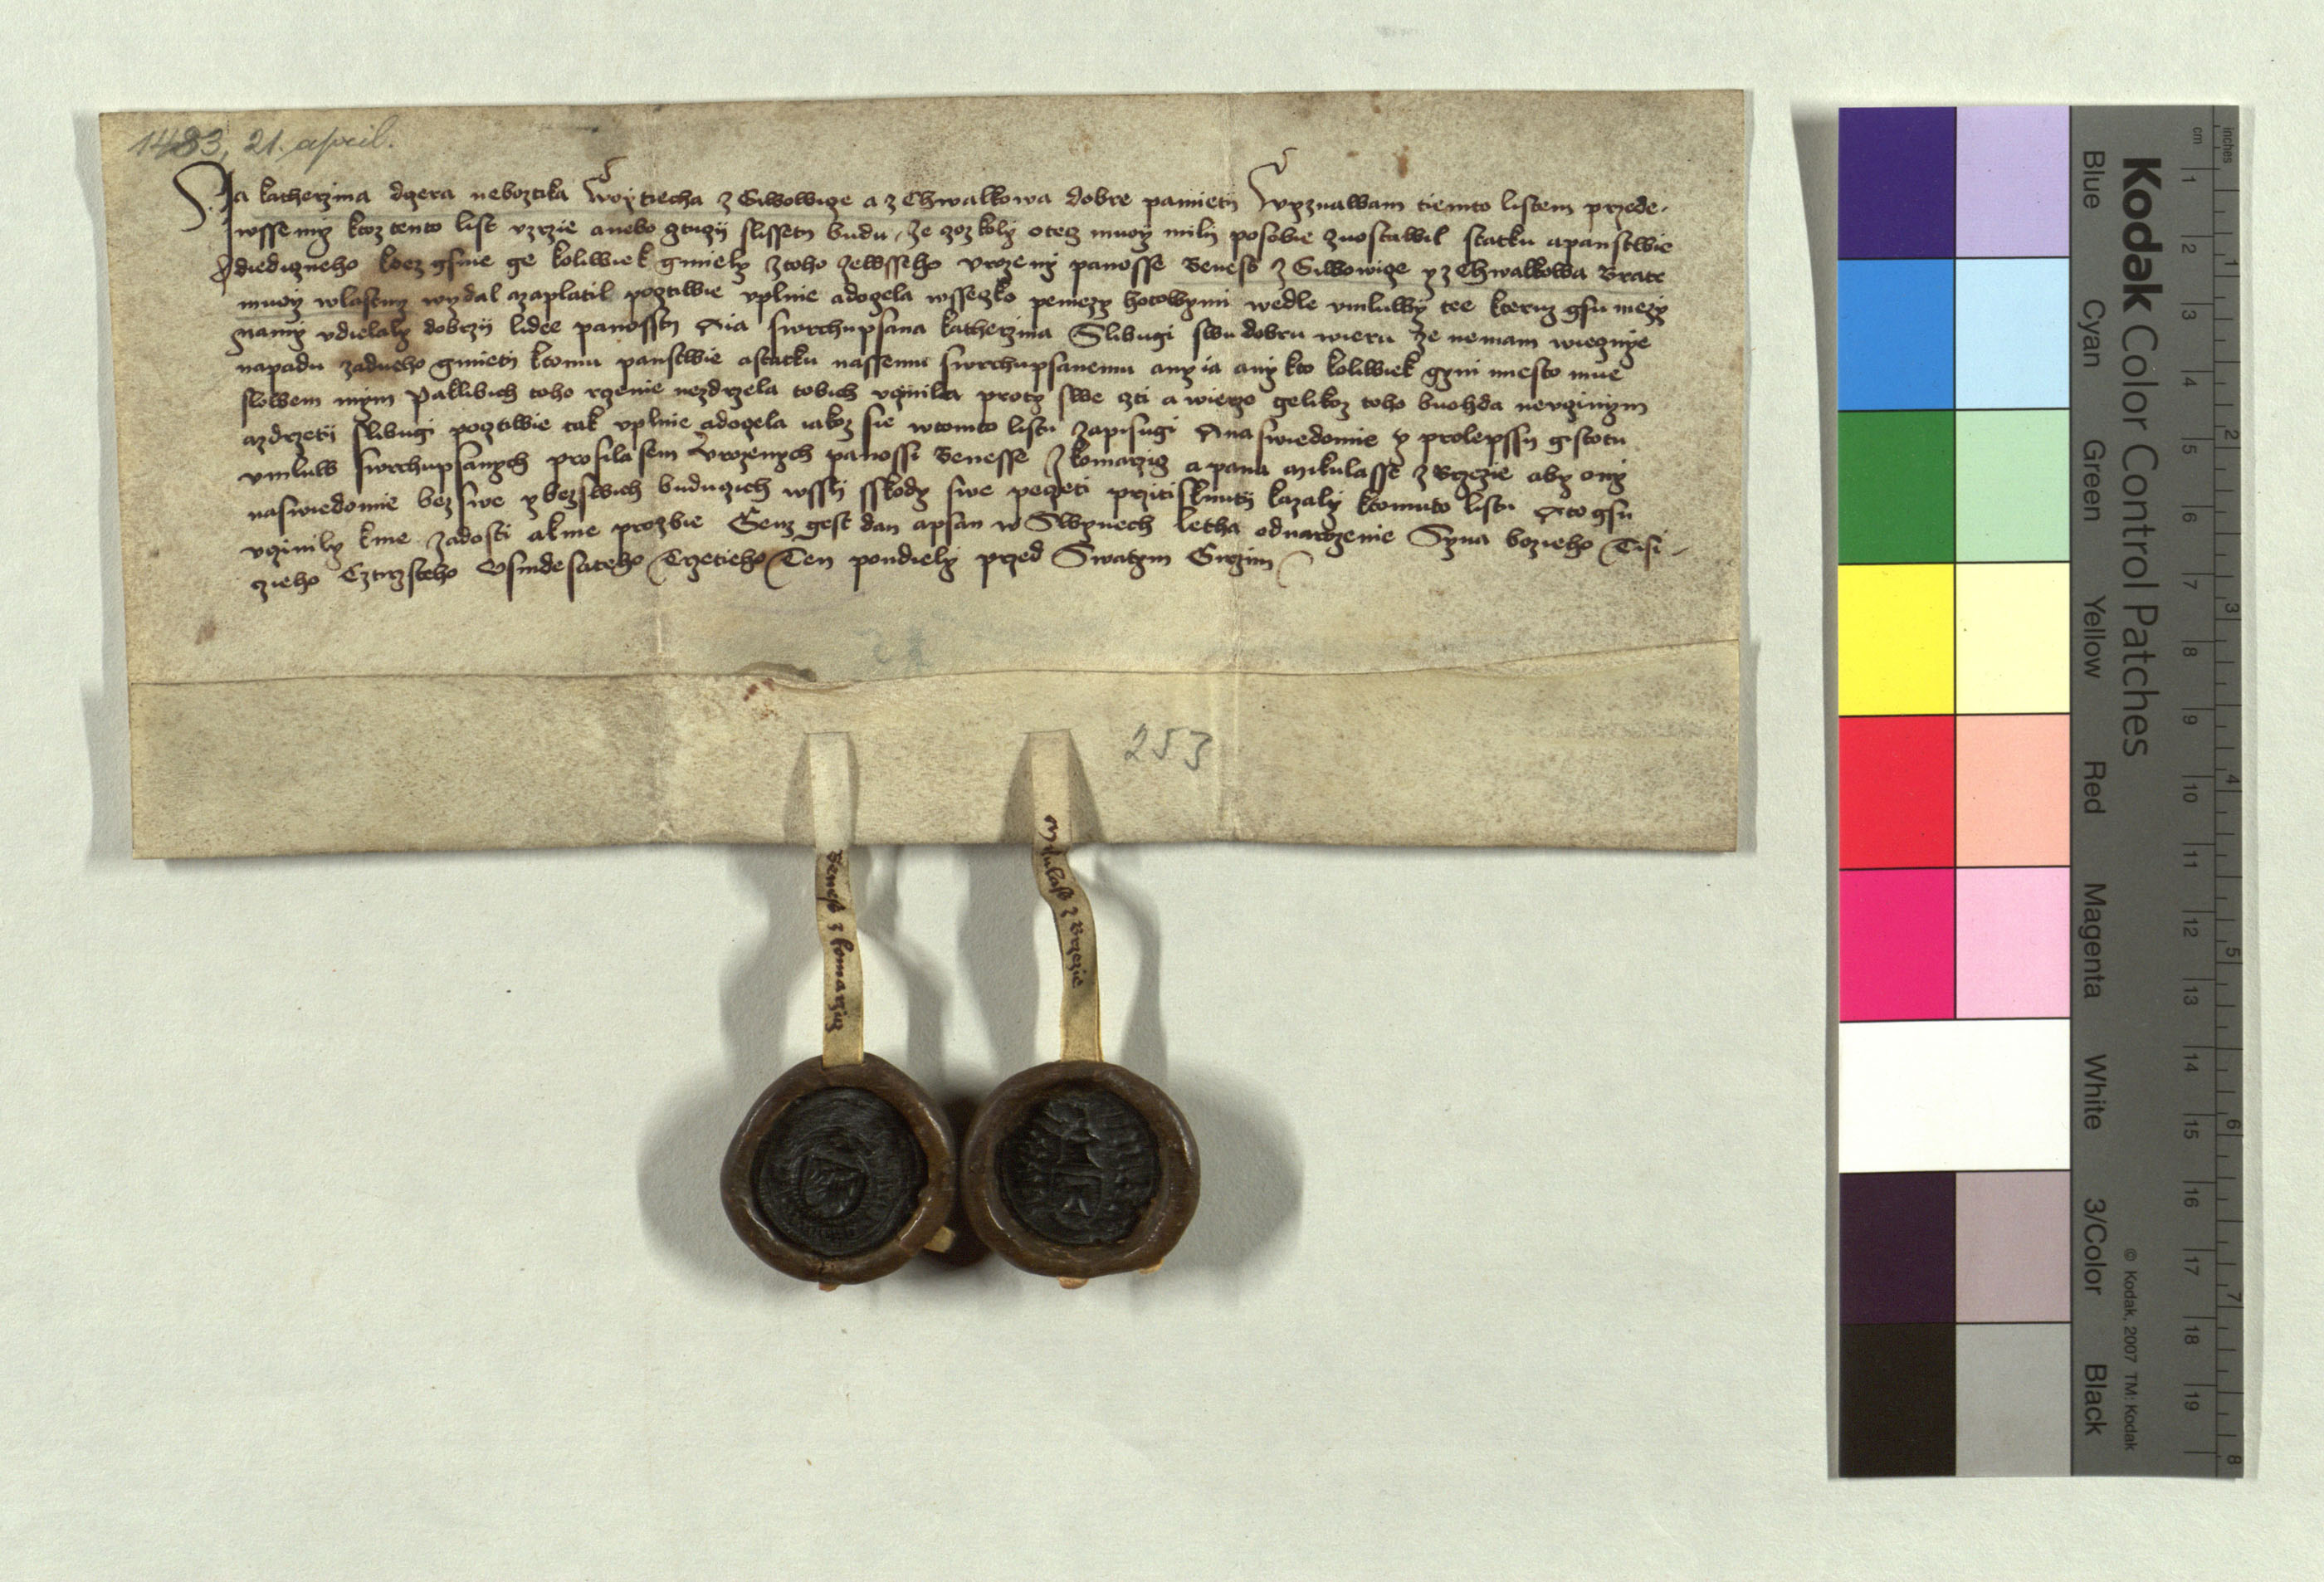 1483, 21. april.
Ja katherzina dczera neboztika Woytiecha z Giwowicze a z Chwalkowa dobre pamietij Wyznawam tiemto listem przede
wssemy ktoz tento list vzrzie anebo gtuczij slisseti budu, ze czoz koly otecz muoy milij po sobie zuostawil statku apanstwie
diediczneho koez gsme ge koliwiek gmiely ztoho zewsseho vrozeny panosse Beness z Giwowicze y z Chwalkowa Bratr
muoy wlastny wydal azaplatil pocztiwie vplnie adocela wsseczko peniezy hotowymi wedle vmluwy tee kteruz gsu mezy
namy vdielaly dobrzij lidee panossy A ia swrchupsana katherzina Slibugi swu dobru wieru ze nemam wiecznye
napadu zadneho gmieti ktomu panstwie astatku nassemu swrchupsanemu any ia any kto koliwiek gyny miesto mne
slowem mym Paklibich toho rzenie nezdrzela tobich vczinila proty swe czti a wierze gelikoz toho buohda nevczinym
azdrzeti slibugi pocztiwie tak vplnie adocela iakoz sie wtomto listu zapisugi Ana swiedomie y prolepssy gistotu
vmluw swrchupsanych prosila sem Vrozenych panossi Benesse z komarzicz apana mikulasse z Brzezie aby ony
naswiedomie bez swe y bez swich buduczich wssij sskody swe peczeti prziti­sknuti kazaly ktomuto listu Ato gsu
vczinily kme zadosti akme prozbie Genz gest dan apsan w Slwynech letha odnarozenie Syna bozieho Tisi-
czieho Cztyrzsteho Osmdesateho Trzetieho Ten pondiely przed Swatym Girzim
253
Beness z komarzicz
Mikulass z Brzezie
Kodak Color Control Patches
Blue Cyan Green Yellow Red Magenta White 3/Color Black
© Kodak, 2007 TM: Kodak
inches 1 2 3 4 5 6 7 8
cm 1 2 3 4 5 6 7 8 9 10 11 12 13 14 15 16 17 18 19